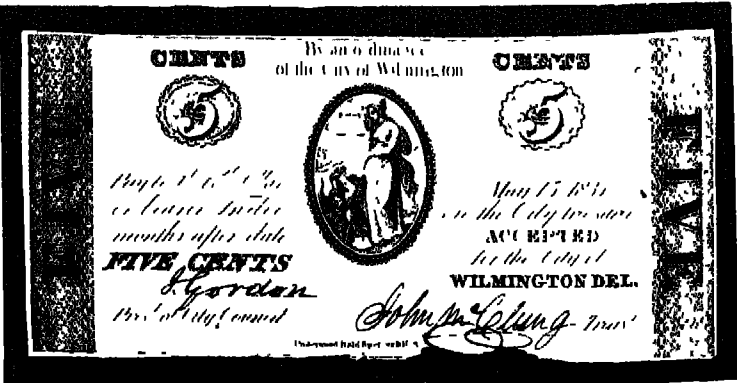 CENTS
By an ordinance
of the City of Wilmington
CENTS
5
5
FIVE
FIVE
Pay to
or bearer twelve
months after date
FIVE CENTS
J. Gordon
Pres.t of City Council
May 15
on the City treasurer
ACCEPTED
for the City of
WILMINGTON DEL.
John McClung Treas.r